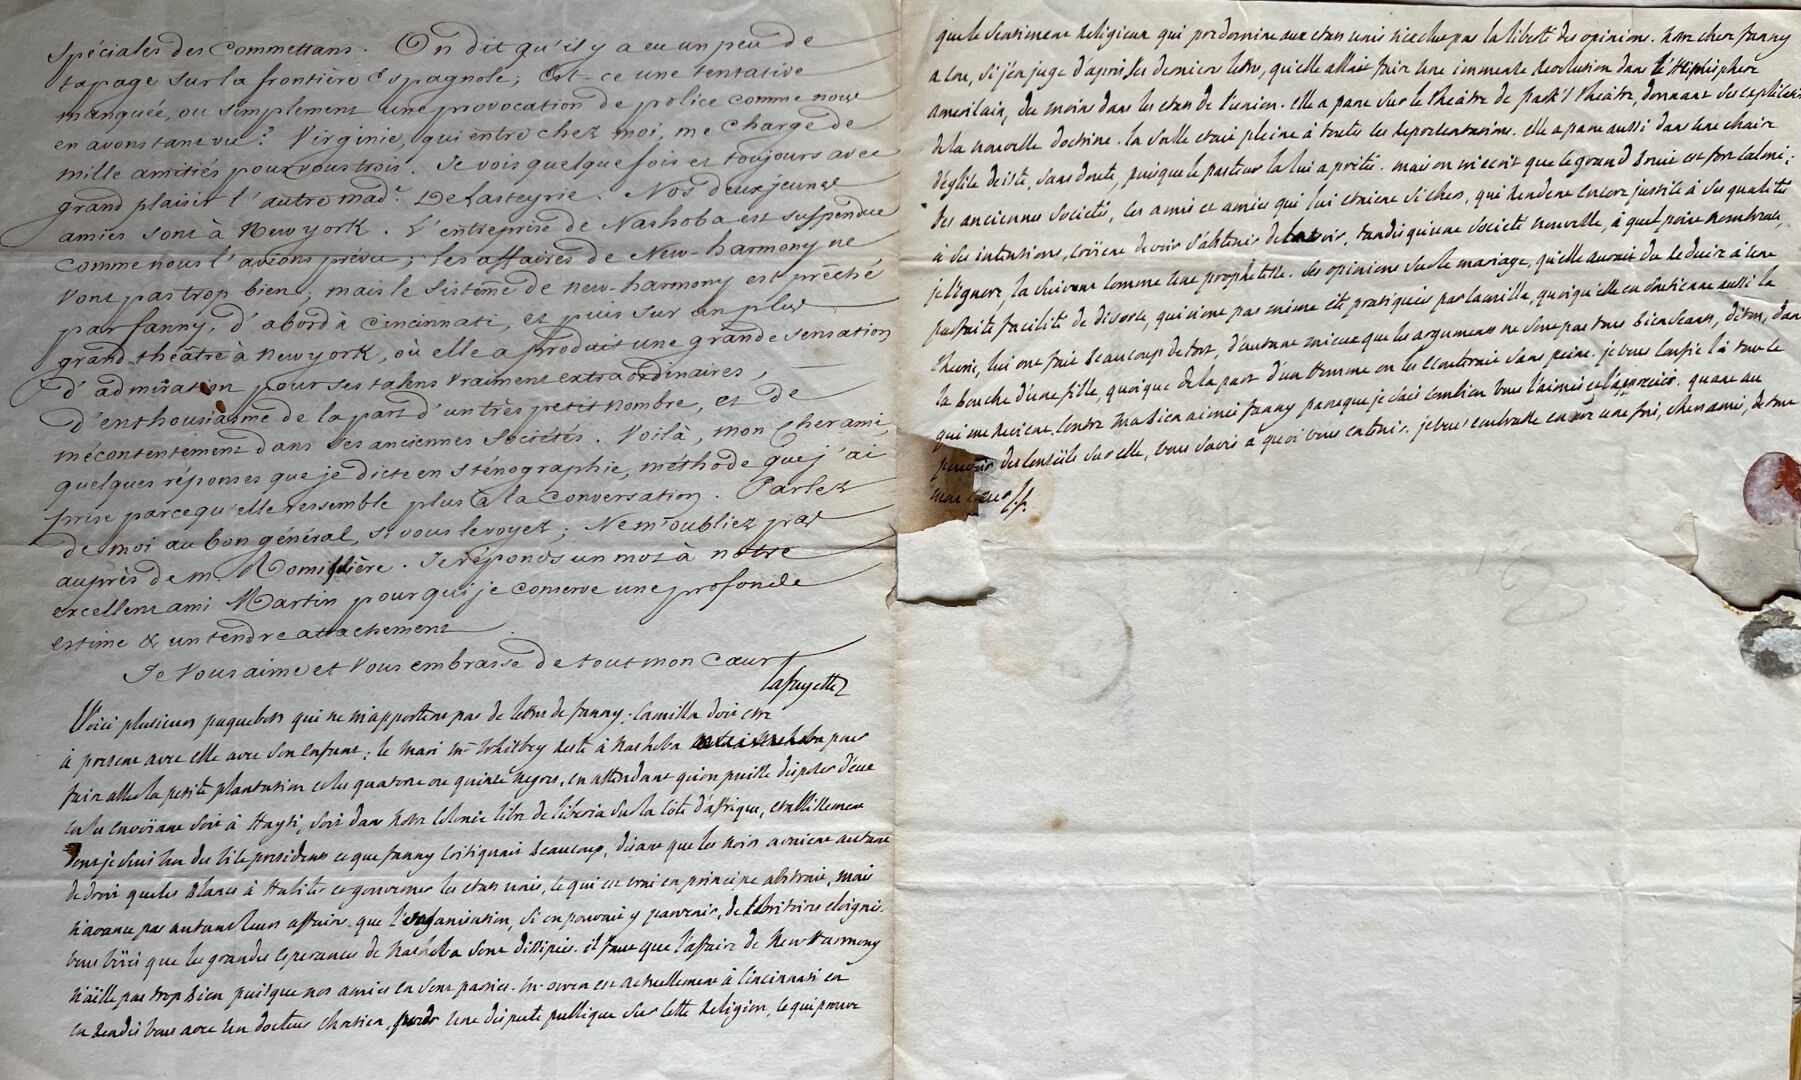 spéciales des Commettans. On dit qu'il y a eu un peu de
tapage sur la frontière Espagnole; Est-ce une tentative
manquée, ou simplement une provocation de police comme nous
en avons tant vu? Virginie, qui entre chez moi, me charge de
mille amitiés pour vous trois. Je vois quelquefois et toujours avec
grand plaisir l'autre mad.e De Lasteyrie. Nos deux jeunes
amies sont à New york. L'entreprise de Nashoba est suspendue
comme nous l'avions prévu; les affaires de New-harmony ne
vont pas trop bien; mais le sistême de new-harmony est prêché
par fanny, d'abord à Cincinnati, et puis sur un plus
grand théâtre à new york, où elle a produit une grande sensation
d'admiration pour ses talens vraiment extraordinaires,
d'enthousiasme de la part d'un très petit nombre, et de
mécontentement dans ses anciennes sociétés. Voilà, mon Cher ami,
quelques réponses que je dicte en sténographie, méthode que j'ai
prise parcequ'elle ressemble plus à la conversation. Parlez
de moi au bon général, si vous le voyez; Ne m'oubliez pas
auprès de m. . Je réponds un mot à notre
excellent ami Martin pour qui je conserve une profonde
estime & un tendre attachement.
Je Vous aime et Vous embrasse de tout mon Cœur
Lafayette
Voici plusieurs paquebots qui ne m'apportent pas de lettres de fanny; Camilla doit etre
à present avec elle avec son enfant; le mari Mr Whitbey reste à Nashoba pour
faire aller la petite plantation et les quatorze ou quinze negres, en attendant qu'on puisse disposer d'eux
en les envoïant soit à Hayti, soit dans notre Colonie libre de liberia sur la Côte d'afrique, etablissement
dont je suis un des vice presidents ce que fanny critiquait beaucoup, disant que les noirs avaient autant
de droit que les Blancs à habiter et gouverner les etats unis, ce qui est vrai en principe abstrait, mais
n'avance pas autant leurs affaires que l'organisation, si on pouvait y parvenir, de territoires eloignés.
vous voïez que les grandes esperances de Nashoba sont dissipées. il faut que l'affaire de New Harmony
n'aille pas trop bien puisque nos amies en sont parties. Mr owen est actuellement à Cincinnati en
en rendés vous avec un docteur chretien, pour une dispute publique sur cette religion, ce qui prouve
que le sentiment religieux qui predomine aux etats unis n'exclue pas la liberté des opinions. notre chere fanny
a cru, si j'en juge d'après ses dernieres lettres, qu'elle allait faire une immense revolution dans l'Hemisphere
americain, du moins dans les etats de l'union. elle a paru sur le theâtre de Park's theâtre, donnant ses explications
de la nouvelle doctrine. la salle etait pleine à toutes les representations. elle a paru aussi dans une chaire
d'église deiste, sans doute, puisque le pasteur la lui a prêtée. mais on m'ecrit que le grand bruit est fort calmé;
les anciennes societés, les amis et amies qui lui etaient si chers, qui rendent encore justice à ses qualités
à ses intentions, croïent devoir s'abstenir de la voir, tandis qu'une societé nouvelle, à quel point nombreuse,
je l'ignore, la suivent comme une prophetesse. ses opinions sur le mariage, qu'elle aurait du reduire à une
parfaite facilité de divorce, qui n'ont pas même été pratiquées par Camilla, quoiqu'elle en soutienne aussi la
theorie, lui ont fait beaucoup de tort, d'autant mieux que les arguments ne sont pas tous bienseants, dit on, dans
la bouche d'une fille, quoique de la part d'un Homme on les ecouterait sans peine. je vous confie là tout ce
qui me revient contre ma bien aimée fanny parceque je sais combien vous l'aimés et l'appreciés. quant au
pouvoir des conseils sur elle, vous savés à quoi vous en tenir. je vous embrasse encore une fois, cher ami, de tout
mon cœur